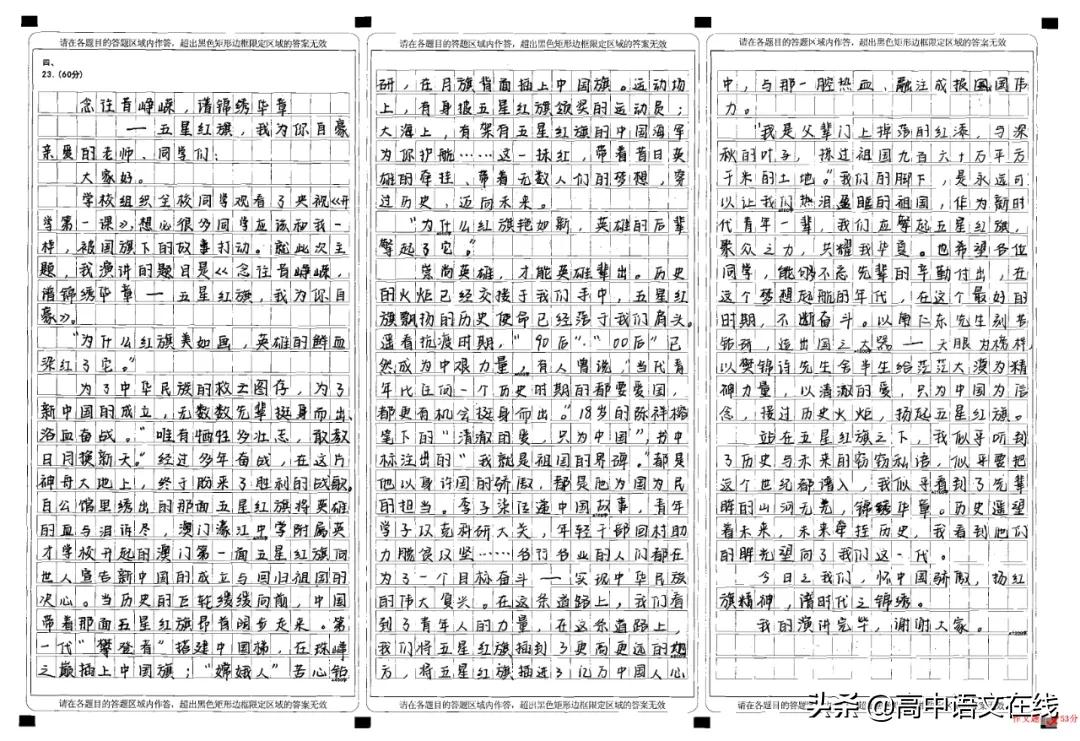 请在各题目的答题区域内作答，超出黑色矩形边框限定区域的答案无效
四、
23.（60分）
念往昔峥嵘，谱锦绣华章
——五星红旗，我为你自豪
亲爱的老师、同学们：
大家好。
学校组织全校同学观看了央视《开
学第一课》，想必很多同学应该和我一
样，被国旗下的故事打动。就此次主
题，我演讲的题目是《念往昔峥嵘，
谱锦绣华章——五星红旗，我为你自
豪》。
“为什么红旗美如画，英雄的鲜血
染红了它。”
为了中华民族的救亡图存，为了
新中国的成立，无数先辈挺身而出、
浴血奋战。“唯有牺牲多壮志，敢教
日月换新天。”经过多年奋战，在这片
神舟大地上，终于盼来了胜利的战歌。
白公馆里绣出的那面五星红旗将英雄
的血与泪诉尽，澳门濠江中学附属英
才学校升起的澳门第一面五星红旗向
世人宣告新中国的成立与回归祖国的
决心。当历史的巨轮缓缓向前，中国
带着那面五星红旗昂首阔步走来。第
一代“攀登者”搭建中国梯，在珠峰
之巅插上中国旗；“嫦娥人”苦心钻
请在各题目的答题区域内作答，超出黑色矩形边框限定区域的答案无效
请在各题目的答题区域内作答，超出黑色矩形边框限定区域的答案无效
研，在月球背面插上中国旗。运动场
上，有身披五星红旗领奖的运动员；
大海上，有架有五星红旗的中国海军
为你护航……这一抹红，带着昔日英
雄的牵挂、带着无数人们的梦想，穿
过历史，迈向未来。
“为什么红旗艳如新，英雄的后辈
擎起了它。”
崇尚英雄，才能英雄辈出。历史
的火炬已经交接于我们手中，五星红
旗飘扬的历史使命已经落于我们肩头。
遥看抗疫时期，“90后”“00后”已
然成为中艰力量，有人曾说，“当代青
年比任何一个历史时期的都要爱国，
都更有机会挺身而出。”18岁的陈祥榕
笔下的“清澈的爱，只为中国”，书中
标注出的“我就是祖国的界碑。”都是
他以身许国的骄傲，都是他为国为民
的担当。李子柒传递中国故事，青年
学子攻克科研大关，年轻干部回村助
力脱贫攻坚……各行各业的人们都在
为了一个目标奋斗——实现中华民族
的伟大复兴。在这条道路上，我们看
到了青年人的力量，在这条道路上，
我们将五星红旗插到了更高更远的地
方，将五星红旗插进了亿万中国人心
请在各题目的答题区域内作答，超出黑色矩形边框限定区域的答案无效
请在各题目的答题区域内作答，超出黑色矩形边框限定区域的答案无效
中，与那一腔热血、融注成报国伟
力。
“我是父辈门上掉落的红漆，与深
秋的叶子，抹过祖国九百六十万平方
千米的土地。”我们的脚下，是永远可
以让我们热泪盈眶的祖国，作为新时
代青年一辈，我们应擎起五星红旗，
聚众之力，共耀我华夏。也希望各位
同学，能够不忘先辈的辛勤付出，在
这个梦想起航的年代，在这个最好的
时期，不断奋斗。以南仁东先生刻苦
钻研，造出国之大器——天眼为榜样，
以樊锦诗先生舍半生给茫茫大漠为精
神力量，以清澈的爱，只为中国为信
念，接过历史火炬，扬起五星红旗。
站在五星红旗之下，我似乎听到
了历史与未来的窃窃私语，似乎要把
这个世纪都谱入，我似乎看到了先辈
瞬的山河无恙，锦绣华章。历史遥望
着未来，未来牵挂历史，我看到他们
的眸光望向了我们这一代。
今日之我们，怀中国骄傲，扬红
旗精神，谱时代之锦绣。
我的演讲完毕，谢谢大家。
请在各题目的答题区域内作答，超出黑色矩形边框限定区域的答案无效
头条 @高中语文在线
53分